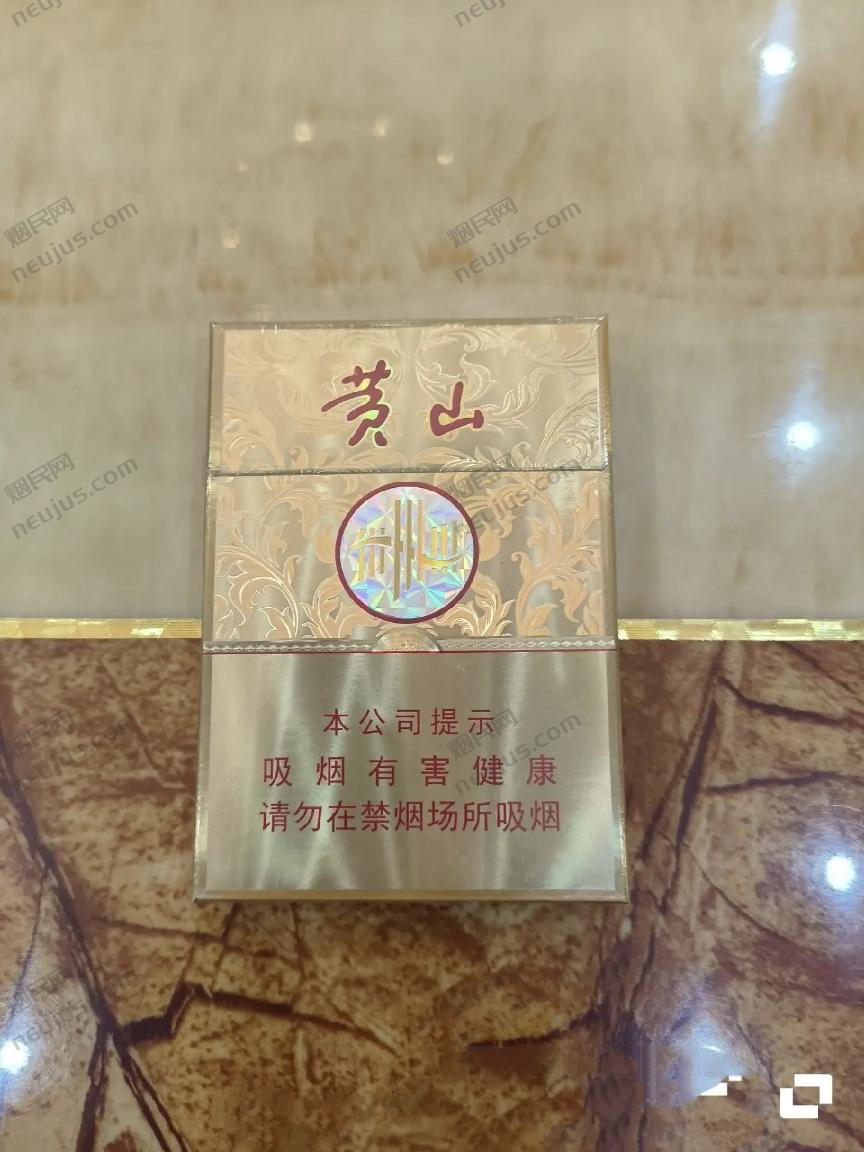 烟民网
neujus.com
烟民网
neujus.com
黄山
烟民网
neujus.com
本公司提示
吸烟有害健康
请勿在禁烟场所吸烟
烟民网
neujus.com